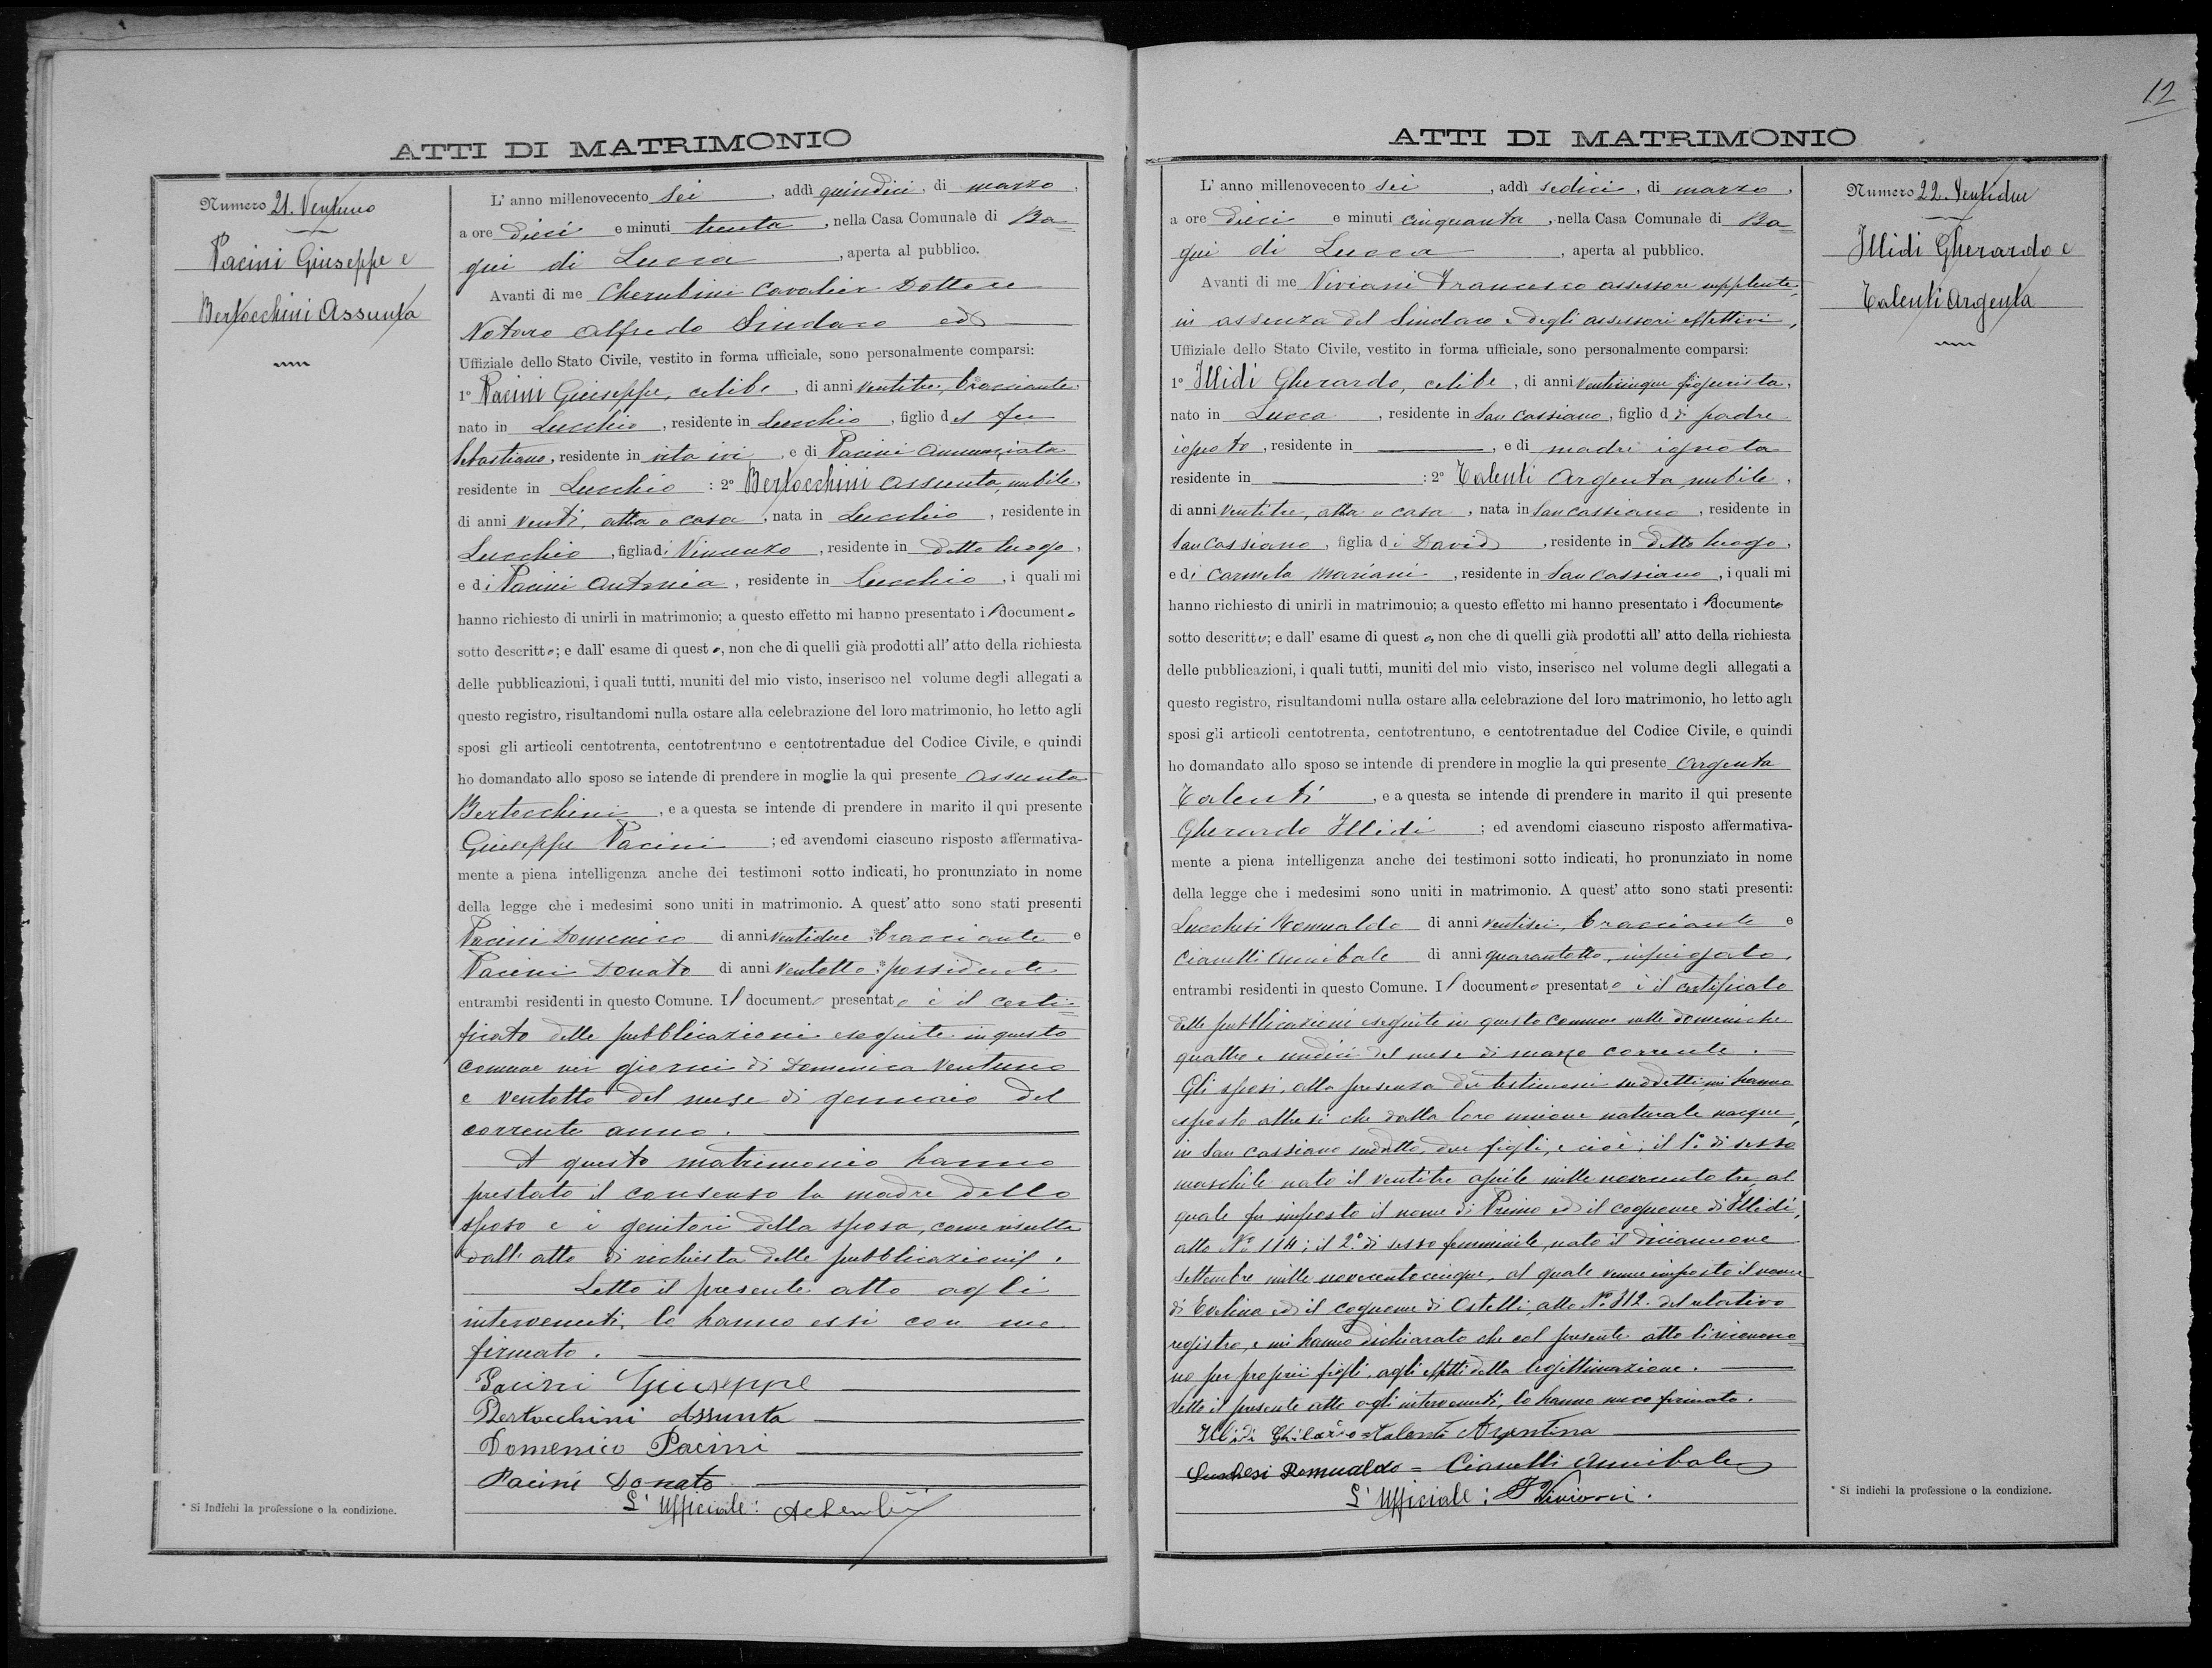 ATTI DI MATRIMONIO
Numero 21. Ventuno
Pacini Giuseppe e
Bertocchini Assunta
L' anno millenovecento sei , addì quindici, di marzo,
a ore dieci e minuti trenta , nella Casa Comunale di Ba=
gni di Lucca , aperta al pubblico.
Avanti di me Cherubini Cavalier Dottore
Notaro Alfredo Sindaco ed
Uffiziale dello Stato Civile, vestito in forma ufficiale, sono personalmente comparsi:
1° Pacini Giuseppe, celibe , di anni ventitre, bracciante,
nato in Lucchio , residente in Lucchio , figlio del fu
Sebastiano, residente in vita ivi , e di Pacini Annunziata
residente in Lucchio : 2° Bertocchini Assunta, nubile,
di anni venti, atta a casa , nata in Lucchio , residente in
Lucchio , figlia di Vincenzo , residente in detto luogo,
e di Pacini Antonia , residente in Lucchio , i quali mi
hanno richiesto di unirli in matrimonio; a questo effetto mi hanno presentato il documento
sotto descritto; e dall' esame di questo, non che di quelli già prodotti all' atto della richiesta
delle pubblicazioni, i quali tutti, muniti del mio visto, inserisco nel volume degli allegati a
questo registro, risultandomi nulla ostare alla celebrazione del loro matrimonio, ho letto agli
sposi gli articoli centotrenta, centotrentuno e centotrentadue del Codice Civile, e quindi
ho domandato allo sposo se intende di prendere in moglie la qui presente Assunta
Bertocchini , e a questa se intende di prendere in marito il qui presente
Giuseppe Pacini ; ed avendomi ciascuno risposto affermativa-
mente a piena intelligenza anche dei testimoni sotto indicati, ho pronunziato in nome
della legge che i medesimi sono uniti in matrimonio. A quest' atto sono stati presenti
Pacini Domenico di anni ventidue, bracciante e
Pacini Donato di anni ventotto, possidente
entrambi residenti in questo Comune. Il documento presentato è il certi=
ficato delle pubblicazioni eseguite in questo
Comune nei giorni di Domenica ventuno
e ventotto del mese di gennaio del
corrente anno.
A questo matrimonio hanno
prestato il consenso la madre dello
sposo e i genitori della sposa, come risulta
dall' atto di richiesta delle pubblicazioni.
Letto il presente atto agli
intervenuti, lo hanno essi con me
firmato.
Pacini Giuseppe
Bertocchini Assunta
Domenico Pacini
Pacini Donato
L' Ufficiale:
* Si indichi la professione o la condizione.
12
ATTI DI MATRIMONIO
L' anno millenovecento sei , addì sedici, di marzo,
a ore dieci e minuti cinquanta , nella Casa Comunale di Ba=
gni di Lucca , aperta al pubblico.
Avanti di me Viviani Francesco assessore supplente,
in assenza del Sindaco e degli assessori effettivi,
Uffiziale dello Stato Civile, vestito in forma ufficiale, sono personalmente comparsi:
1° Illidi Gherardo, celibe , di anni venticinque figurista,
nato in Lucca , residente in San Cassiano, figlio di padre
ignoto, residente in , e di madre ignota
residente in : 2° Talenti Argenta, nubile,
di anni ventitre, atta a casa , nata in San Cassiano , residente in
San Cassiano, figlia di David , residente in detto luogo,
e di Carmela Mariani , residente in San Cassiano , i quali mi
hanno richiesto di unirli in matrimonio; a questo effetto mi hanno presentato il documento
sotto descritto; e dall' esame di questo, non che di quelli già prodotti all' atto della richiesta
delle pubblicazioni, i quali tutti, muniti del mio visto, inserisco nel volume degli allegati a
questo registro, risultandomi nulla ostare alla celebrazione del loro matrimonio, ho letto agli
sposi gli articoli centotrenta, centotrentuno, e centotrentadue del Codice Civile, e quindi
ho domandato allo sposo se intende di prendere in moglie la qui presente Argenta
Talenti , e a questa se intende di prendere in marito il qui presente
Gherardo Illidi ; ed avendomi ciascuno risposto affermativa-
mente a piena intelligenza anche dei testimoni sotto indicati, ho pronunziato in nome
della legge che i medesimi sono uniti in matrimonio. A quest' atto sono stati presenti:
Lucchesi Romualdo di anni ventisei, bracciante e
Cianelli Annibale di anni quarantotto, impiegato,
entrambi residenti in questo Comune. Il documento presentato è il certificato
delle pubblicazioni eseguite in questo Comune nelle domeniche
quattro e undici del mese di marzo corrente.
Gli sposi, alla presenza dei testimoni suddetti, mi hanno
esposto altresì che dalla loro unione naturale nacque,
in San Cassiano suddetto, due figli, e cioè; il 1° di sesso
maschile nato il ventitre aprile mille novecento tre, al
quale fu imposto il nome di Primo ed il cognome di Illidi,
atto N° 114; il 2° di sesso femminile, nato il diciannove
settembre mille novecentocinque, al quale venne imposto il nome
di Evelina ed il cognome di Ostelli, atto N° 312. del relativo
registro, e mi hanno dichiarato che col presente atto li riconosco=
no per proprii figli, agli effetti della legittimazione.
Letto il presente atto agli intervenuti, lo hanno meco firmato.
Illidi = Talenti Argentina
Lucchesi Romualdo = Cianelli Annibale
L' Ufficiale: F Viviani.
Numero 22. Ventidue
Illidi Gherardo e
Talenti Argenta
* Si indichi la professione o la condizione.